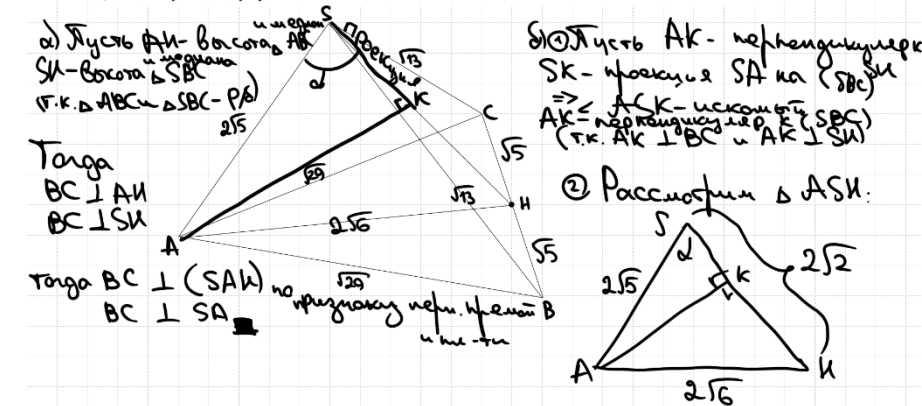 а) Пусть АН - высота и медиана △ АВС
SH - высота и медиана △ SBC
(т.к. △ АВС и △ SBC - р/б)
Тогда
BC ⊥ AH
BC ⊥ SH
Тогда BC ⊥ (SAH) по признаку перп. прямой и пл-ти
BC ⊥ SA ■
S
проекция
α
√13
K
C
2√5
√29
√5
√13
H
A
2√6
√5
√29
B
б) ① Пусть АК - перпендикуляр к SH
SK - проекция SA на (SBC)
=> ∠ ASK - искомый
AK - перпендикуляр к (SBC)
(т.к. AK ⊥ BC и AK ⊥ SH)
② Рассмотрим △ ASH:
S
α
2√2
K
2√5
A
H
2√6